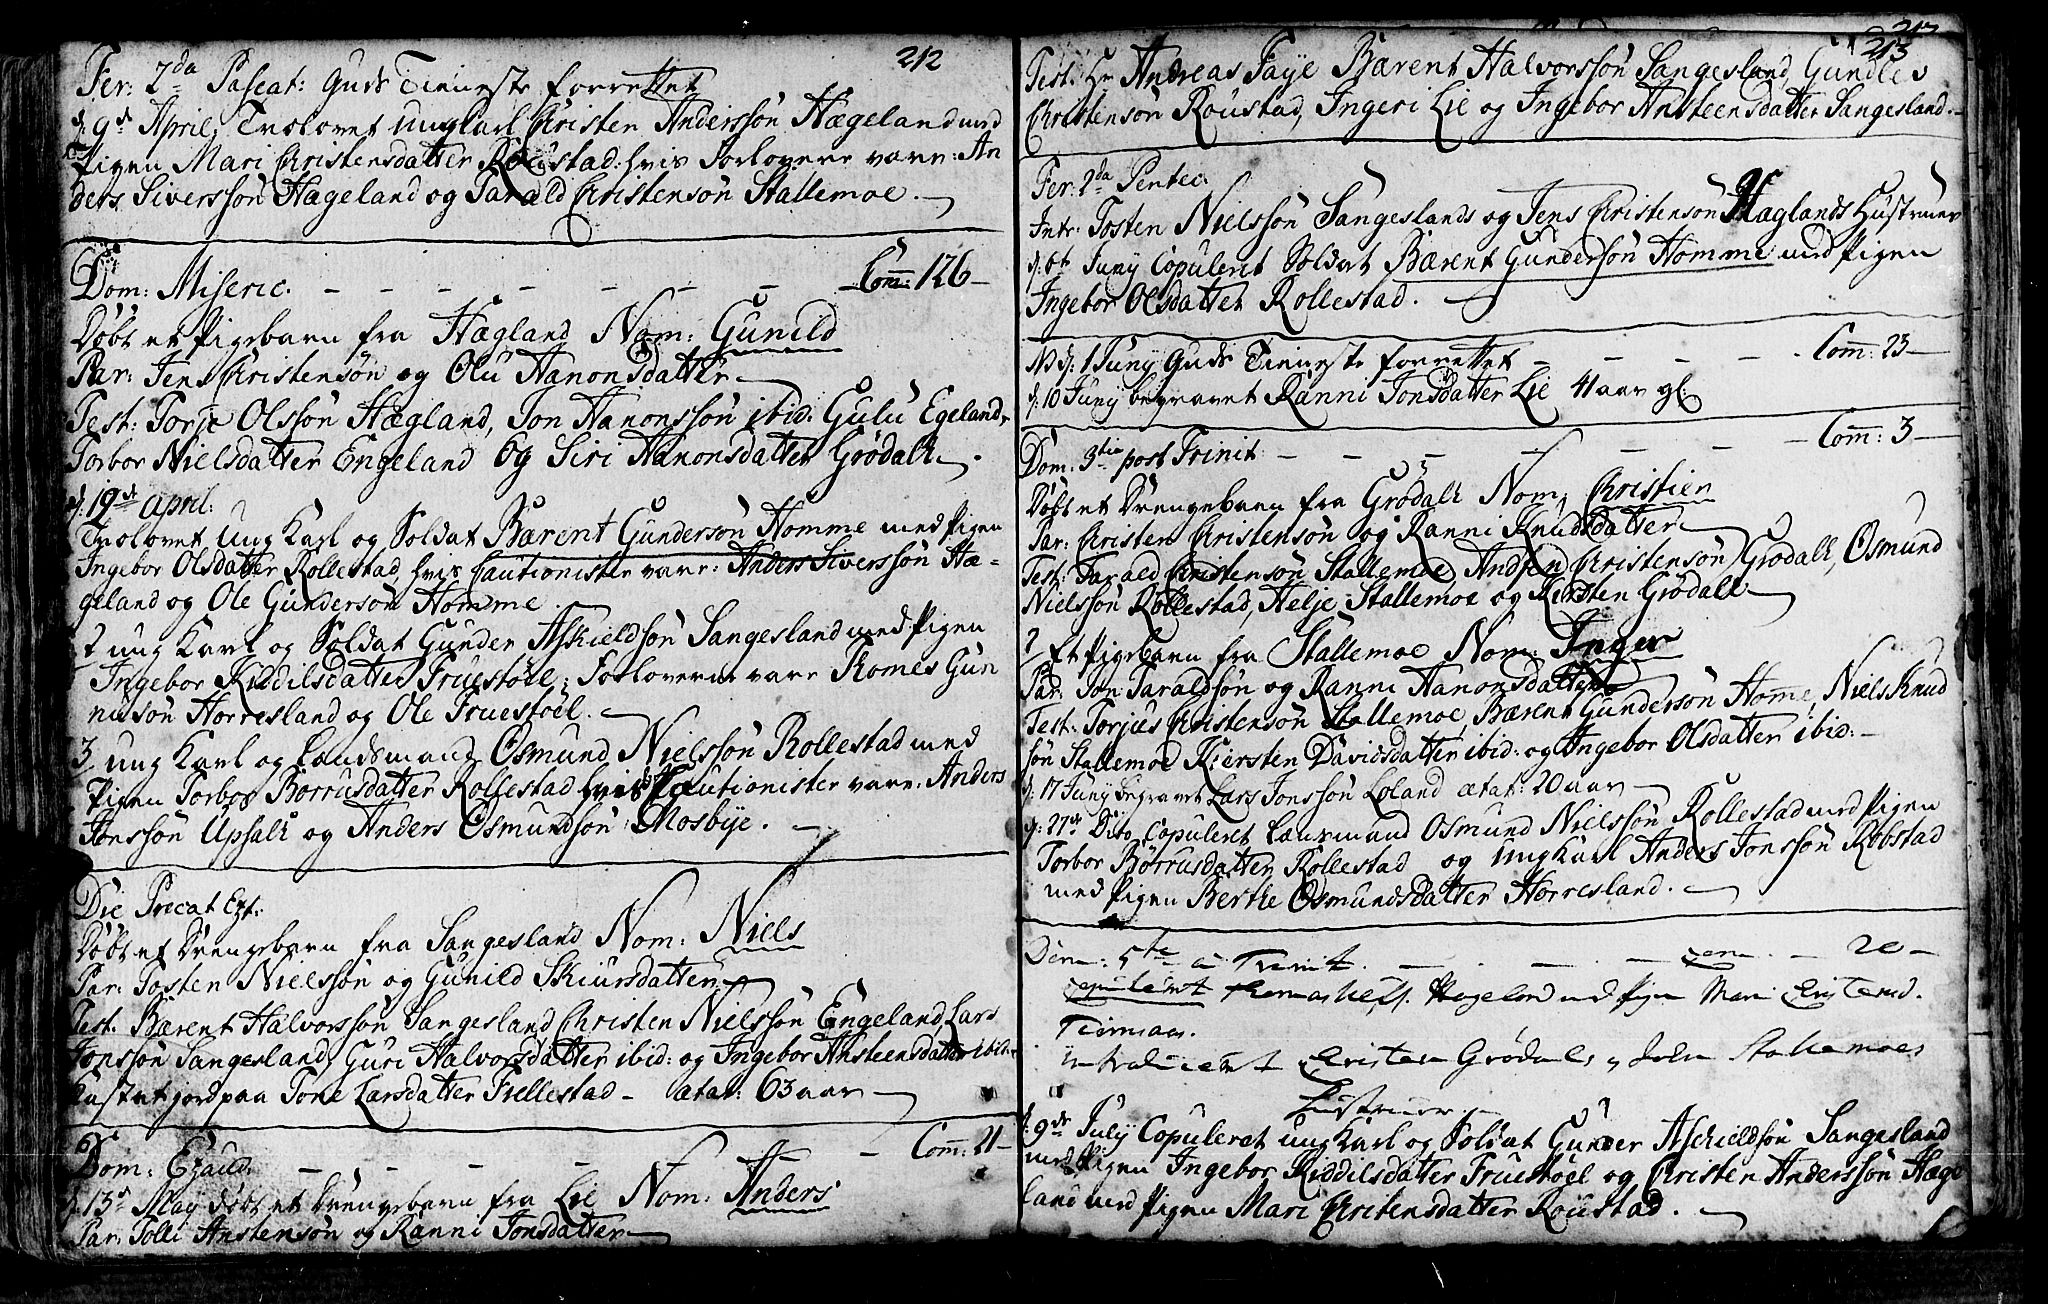 212
Fer: 2da Pascat: Guds Tieneste forrettet
d: 9de April, Trolovet ungkarl Christen Anderssön Hægeland med
Pigen Mari Christensdatter Roustad. hvis Forlovere vare: An
ders Siverssön Hægeland og Tarald Christensön Stallemoe.
Dom: Miseric. — — — — — — Com: 126 —
Döbt et Pigebarn fra Hægland Nom: Gunild
Par: Jens Christensön og Olu Hanonsdatter
Test: Torje Olssön Hægland, Jon Hanonssön ibid: Gulu Egeland,
Torbor Nielsdatter Engeland Og Siri Hanonsdatter Grödalh.
d: 19de April:
Trolovet Ung Karl og Soldat Bærent Gundersön Homme med Pigen
Ingebor Olsdatter Rollestad, hvis Cautionister vare: Anders Siverssön Hæ-
geland og Ole Gundersön Homme.
2 ung Karl og Soldat Gunder Askieldsön Sangesland med Pigen
Ingebor Kiddilsdatter Fruestöel; Forloverne vare Tomes Gun
nusön Horresland og Ole Fruestöel.
3. ung Karl og Landsmand Osmund Nielssön Rollestad med
Pigen Torbor Börrusdatter Rollestad hvis Cautionister vare: Anders
Jonssön Upsalh og Anders Osmundsön Mosbye.
Die Precat Ext:
Döbt et Drengebarn fra Sangesland Nom: Niels
Par: Tosten Nielssön og Gunild Skiursdatter
Test. Bærent Halvorssön Sangesland Christen Nielssön Engeland, Lars
Jonssön Sangesland, Guri Halvorsdatter ibid: og Ingebor Ansteensdatter ibid:
Kastet jord paa Tone Larsdatter Frellestad — ætat: 63 aar —
Dom: Exaudi — — — — — Com: 21 —
d: 13de May döbt et Drengebarn fra Lie Nom: Anders
Par: Tolli Anstensön og Ranni Jonsdatter
213
Test. Hr Andreas Faye Bærent Halvorssön Sangesland, Gundlev
Christensön Roustad, Ingeri Lie og Ingebor Ansteensdatter Sangesland.
Fer: 2da Pentec:
Intr: Tosten Nielssön Sangeslands og Jens Christensön Hæglands Hustruer
Juny Copuleret Soldat Bærent Gundersön Homme med Pigen
Ingebor Olsdatter Rollestad.
d: 1 Juny Guds Tieneste forrettet — — — — Com: 23 —
d: 10 Juny begravet Ranni Jonsdatter Lie 41 aar gl:
Dom: 3tia post Trinit — — — — — Com: 3 —
Döbt et Drengebarn fra Grödalh Nom: Christien
Par: Christen Christensön og Ranni Knudsdatter
Test: Tarald Christensön Stallemoe, Christensön Grödalh, Osmund
Nielssön Rollestad, Helje Stallemoe og Kersten Grödalh
2 Et Pigebarn fra Stallemoe Nom: Inger
Par: Jon Taraldsön og Ranni Hanonsdatter
Test: Torjus Christensön Stallemoe Bærent Gundersön Home, Niels Knud
sön Stallemoe Kiersten Davidsdatter ibid: og Ingebor Olsdatter ibid: —
d: 17 Juny begravet Lars Jonssön Loland ætat: 20 aar —
d: 27de Dito, Copuleret Landmand Osmund Nielssön Rollestad med Pigen
Torbor Börrusdatter Rollestad og ung Karl Anders Jonssön Robstad
med Pigen Berthe Osmundsdatter Horresland.
Dom: 5te a Trinit. — — — — 20 —
Copuleret Hægeland med Pigen Mari
introduceret Christen Grödals og Stallemoes
Hustruer
d: 9de July Copuleret ung Karl og Soldat Gunder Aschieldsön Sangesland
med Pigen Ingebor Kiddilsdatter Fruestöel og Christen Anderssön Hæge
land med Pigen Mari Chritensdatter Roustad.